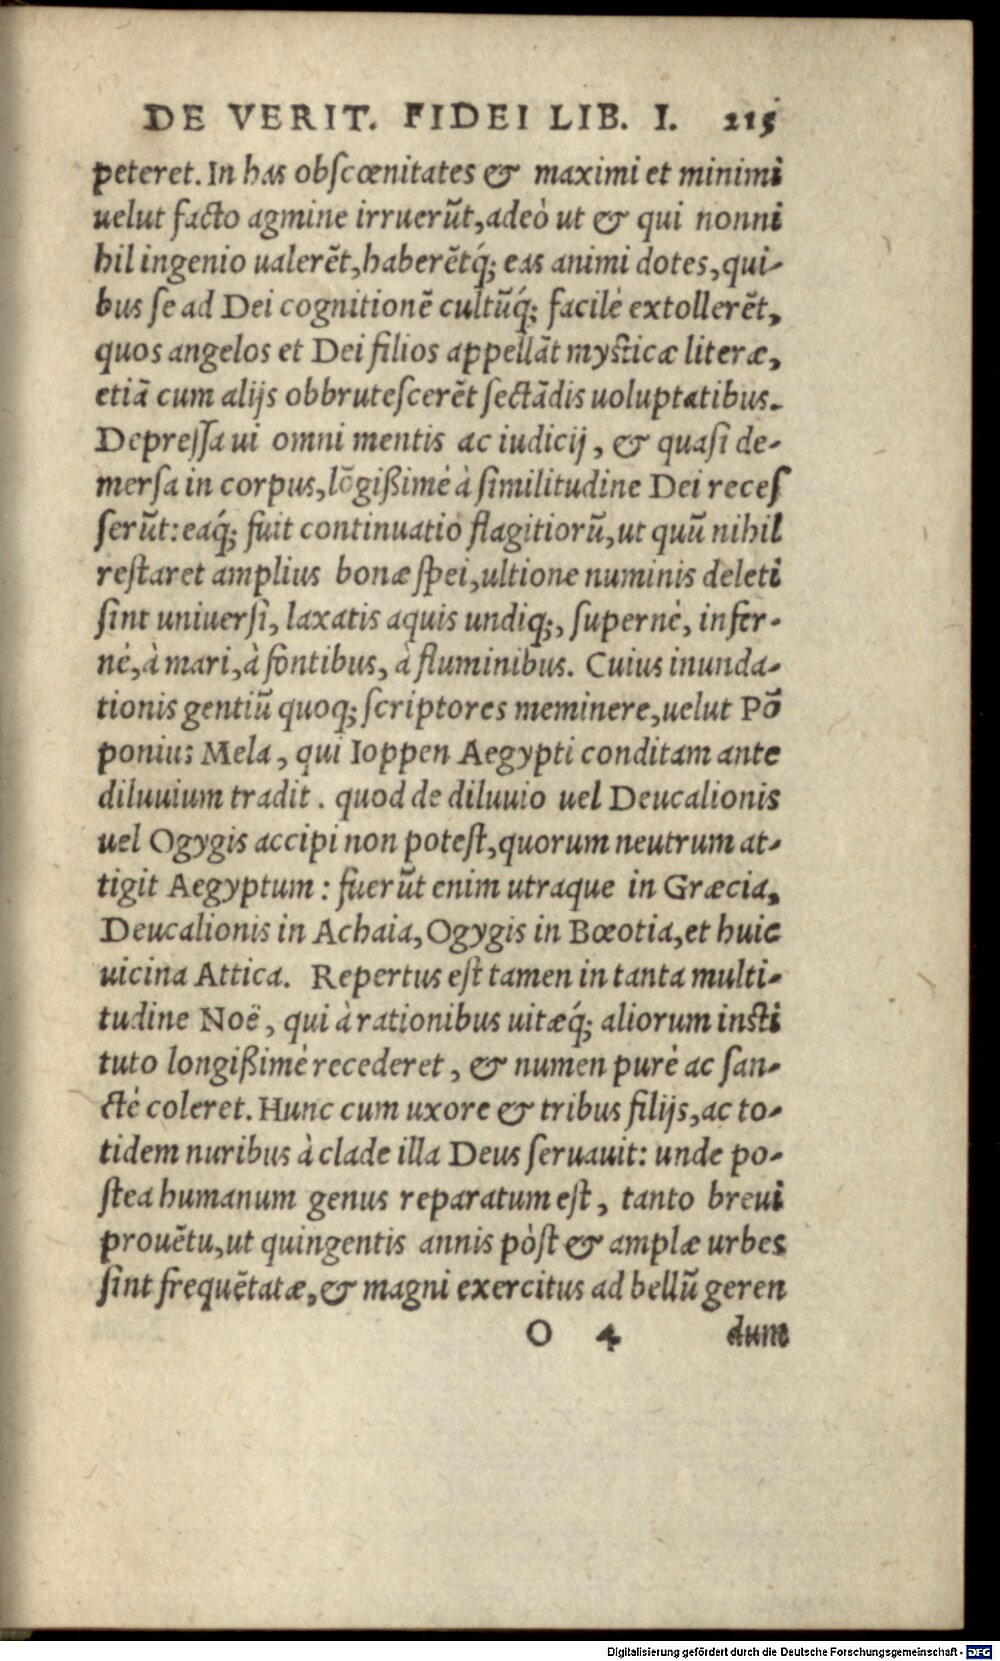 DE VERIT. FIDEI LIB. I. 215
peteret. In has obſcœnitates & maximi et minimi
uelut facto agmine irruerūt, adeò ut & qui nonni
hil ingenio ualerēt, haberētq́; eas animi dotes, qui-
bus ſe ad Dei cognitionē cultūq́; facilè extollerēt,
quos angelos et Dei filios appellāt mysticæ literæ,
etiā cum alijs obbruteſcerēt ſectādis uoluptatibus.
Depreſſa ui omni mentis ac iudicij, & quaſi de-
merſa in corpus, lōgißimè à ſimilitudine Dei receſ
ſerūt: eaq́; fuit continuatio flagitiorū, ut quū nihil
reſtaret amplius bonæ ſpei, ultione numinis deleti
ſint uniuerſi, laxatis aquis undiq;, ſupernè, infer-
nè, à mari, à fontibus, à fluminibus. Cuius inunda-
tionis gentiū quoq; ſcriptores meminere, uelut Pō
ponius Mela, qui Ioppen Aegypti conditam ante
diluuium tradit. quod de diluuio uel Deucalionis
uel Ogygis accipi non poteſt, quorum neutrum at-
tigit Aegyptum: fuerūt enim utraque in Græcia,
Deucalionis in Achaia, Ogygis in Bœotia, et huic
uicina Attica. Repertus eſt tamen in tanta multi-
tudine Noë, qui à rationibus uitæq́; aliorum insti
tuto longißimè recederet, & numen purè ac ſan-
ctè coleret. Hunc cum uxore & tribus filijs, ac to-
tidem nuribus à clade illa Deus ſeruauit: unde po-
ſtea humanum genus reparatum eſt, tanto breui
prouētu, ut quingentis annis pòſt & amplæ urbes
ſint frequētatæ, & magni exercitus ad bellū geren
O 4 dum
Digitalisierung gefördert durch die Deutsche Forschungsgemeinschaft - DFG